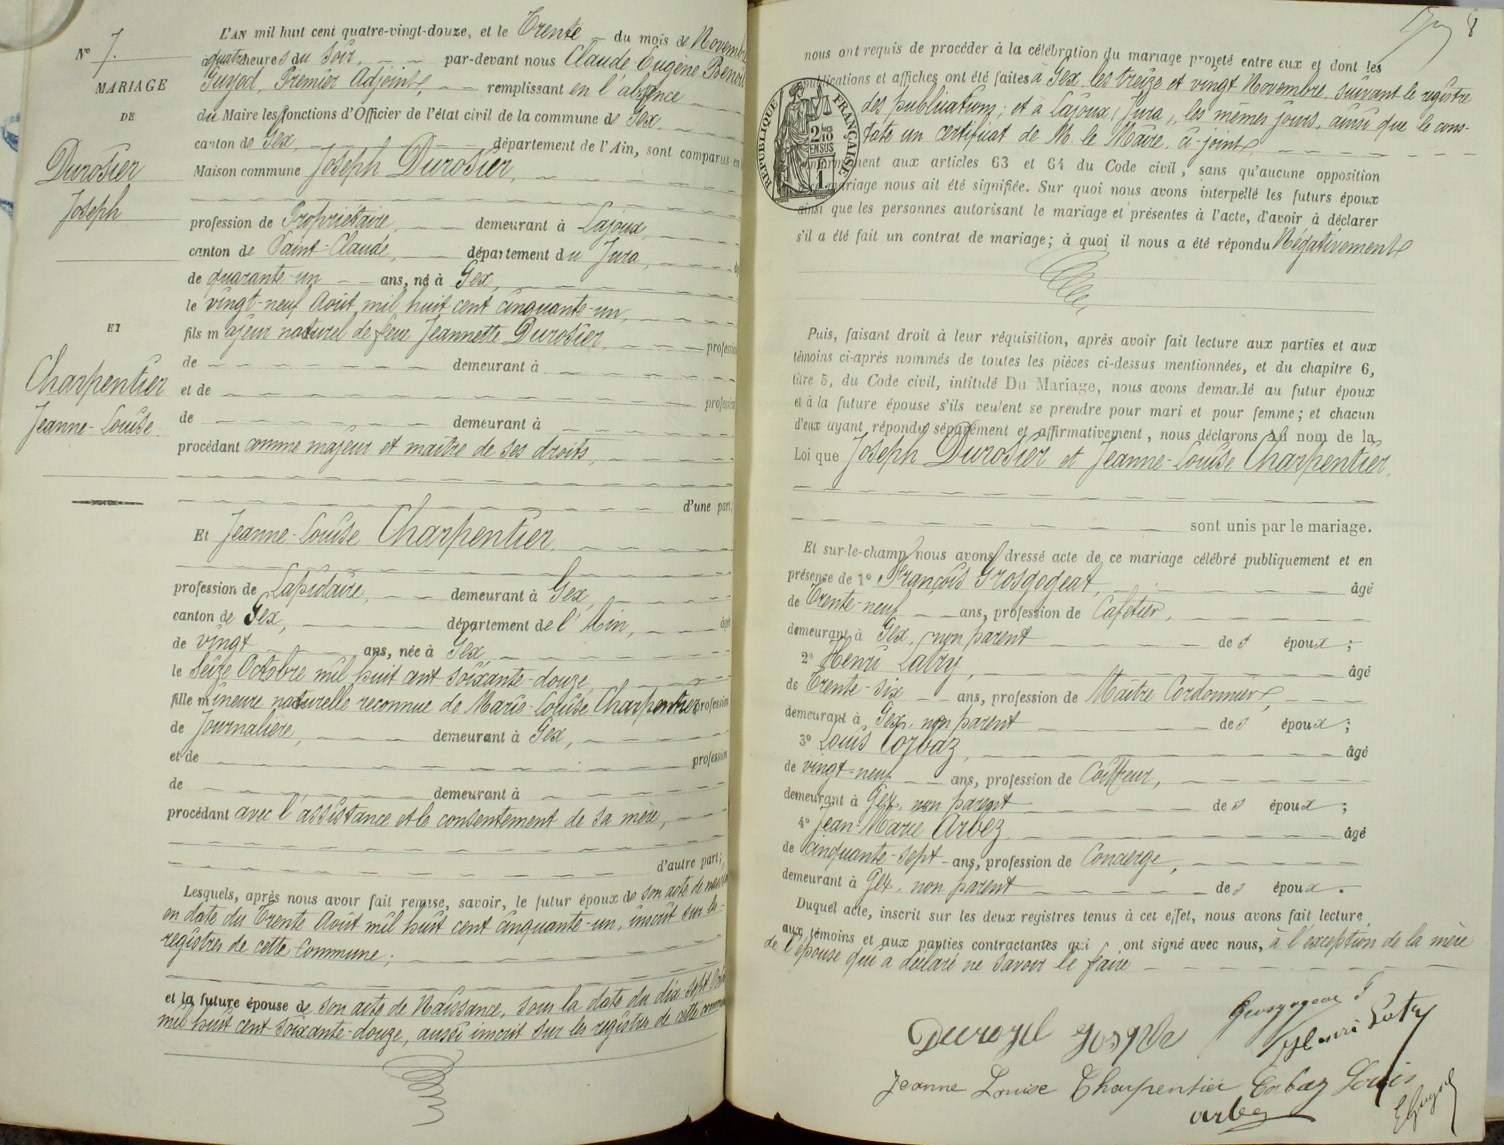 N° 7.
MARIAGE
DE
Durosier
Joseph
ET
Charpentier
Jeanne-Louise.
L'AN mil huit cent quatre-vingt-douze, et le Trente du mois de Novembre
à quatre heures du Soir, par-devant nous Claude Eugène Benoit
Guyod, Premier Adjoint, remplissant en l'absence
du Maire les fonctions d'Officier de l'état civil de la commune de Gex,
canton de Gex, département de l'Ain, sont comparus en
Maison commune Joseph Durosier,
profession de Propriétaire, demeurant à Lajoux,
canton de Saint-Claude, département du Jura,
de quarante-un ans, né à Gex,
le vingt-neuf Août mil huit cent cinquante-un,
fils majeur naturel de feue Jeannette Durosier, profession
de demeurant à
et de profession
de demeurant à
procédant comme majeur et maître de ses droits,
d'une part;
Et Jeanne-Louise Charpentier,
profession de Lapidaire, demeurant à Gex,
canton de Gex, département de l'Ain, âgée
de vingt ans, née à Gex,
le Seize Octobre mil huit cent soixante-douze,
fille mineure naturelle reconnue de Marie-Louise Charpentier, profession
de Journalière, demeurant à Gex,
et de profession
de demeurant à
procédant avec l'assistance et le consentement de sa mère,
d'autre part;
Lesquels, après nous avoir fait remise, savoir, le futur époux de son acte de naissance
en date du Trente Août mil huit cent cinquante-un, inscrit sur les
registres de cette Commune;
et la future épouse de son acte de Naissance, sous la date du dix-sept Octobre
mil huit cent soixante-douze, aussi inscrit sur les registres de cette commune
nous ont requis de procéder à la célébration du mariage projeté entre eux et dont les
publications et affiches ont été faites à Gex, les treize et vingt Novembre, suivant le registre
des publications; et à Lajoux (Jura), les mêmes jours, ainsi que le cons-
tate un certificat de M. le Maire, ci-joint
conformément aux articles 63 et 64 du Code civil, sans qu'aucune opposition
au mariage nous ait été signifiée. Sur quoi nous avons interpellé les futurs époux
ainsi que les personnes autorisant le mariage et présentes à l'acte, d'avoir à déclarer
s'il a été fait un contrat de mariage; à quoi il nous a été répondu Négativement
RÉPUBLIQUE FRANÇAISE
Puis, faisant droit à leur réquisition, après avoir fait lecture aux parties et aux
témoins ci-après nommés de toutes les pièces ci-dessus mentionnées, et du chapitre 6,
titre 5, du Code civil, intitulé Du Mariage, nous avons demandé au futur époux
et à la future épouse s'ils veulent se prendre pour mari et pour femme; et chacun
d'eux ayant répondu séparément et affirmativement, nous déclarons au nom de la
Loi que Joseph Durosier et Jeanne-Louise Charpentier,
sont unis par le mariage.
Et sur-le-champ nous avons dressé acte de ce mariage célébré publiquement et en
présense de 1° François Grosgogeat, âgé
de Trente-neuf ans, profession de Cafetier,
demeurant à Gex, non parent des époux;
2° Henri Latry, âgé
de Trente-six ans, profession de Maître Cordonnier,
demeurant à Gex, non parent des époux;
3° Louis Corbaz, âgé
de vingt-neuf ans, profession de Coiffeur,
demeurant à Gex, non parent des époux;
4° Jean-Marie Arbez âgé
de cinquante-sept ans, profession de Concierge,
demeurant à Gex, non parent des époux.
Duquel acte, inscrit sur les deux registres tenus à cet effet, nous avons fait lecture
aux témoins et aux parties contractantes qui ont signé avec nous, à l'exception de la mère
de l'épouse qui a déclaré ne savoir le faire
Henri Latry
Jeanne Louise Charpentier Corbaz Louis
Arbez